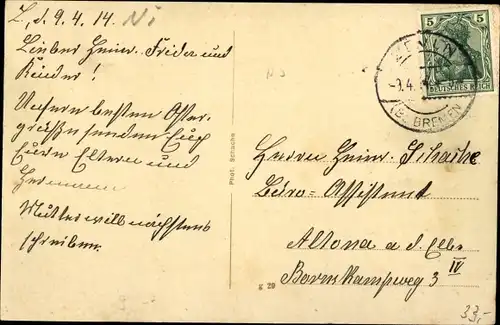 L, d. 9. 4. 14. Ni
Lieber Heinr. Frieda und
Kinder!
Unsern besten Oster-
grüße senden Euch
Eure Eltern und
Hermann
Mutter will nächstens
schreiben.
Phot. Schacke
5 5
DEUTSCHES REICH
-9.4.
(Bz. BREMEN)
Herrn Heinr. Schacke
Büro-Assistent
Altona a. d. Elbe
Bornkampweg 3 IV
g 20
33,-